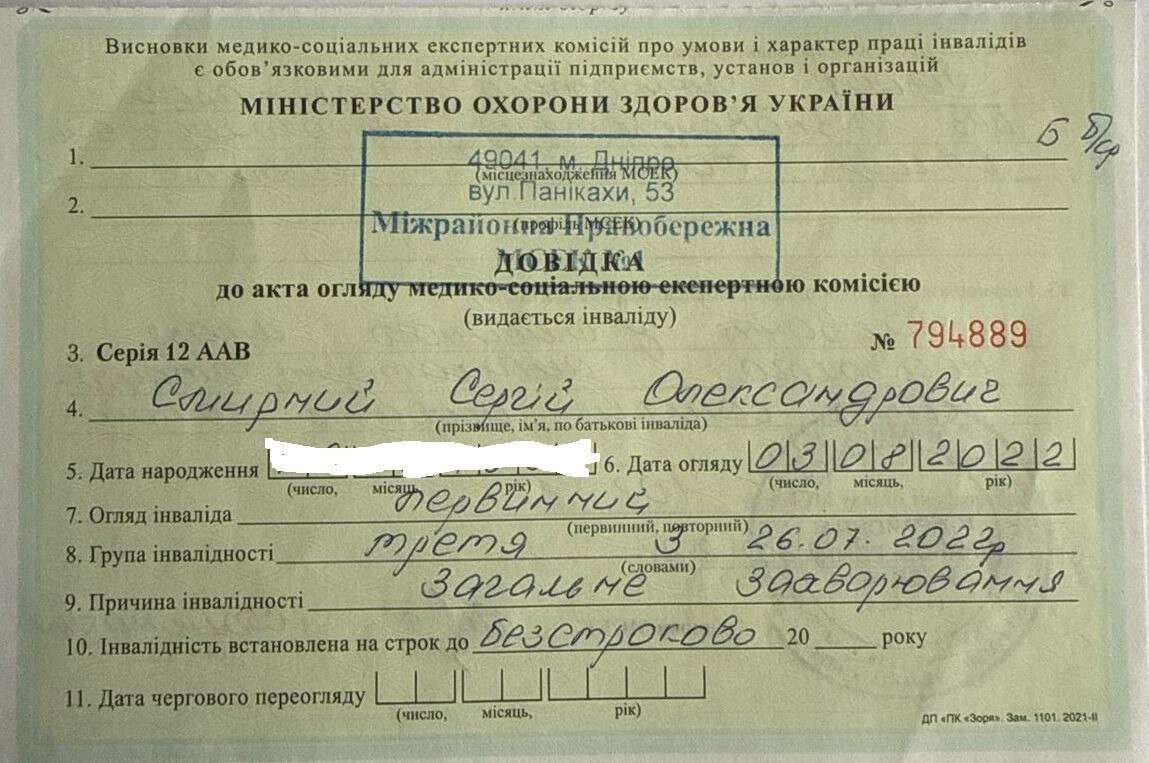 Висновки медико-соціальних експертних комісій про умови і характер праці інвалідів
є обов'язковими для адміністрації підприємств, установ і організацій
МІНІСТЕРСТВО ОХОРОНИ ЗДОРОВ'Я УКРАЇНИ
Б б/ср
1.
49041, м. Дніпро
(місцезнаходження МСЕК)
вул.Панікахи, 53
2.
(профіль МСЕК)
Міжрайонна Правобережна
ДОВІДКА
до акта огляду медико-соціальною експертною комісією
(видається інваліду)
3. Серія 12 ААВ № 794889
4. Смирний Сергій Олександрович
(прізвище, ім'я, по батькові інваліда)
5. Дата народження 6. Дата огляду 03 08 2022
(число, місяць, рік) (число, місяць, рік)
7. Огляд інваліда первинний
(первинний, повторний)
8. Група інвалідності третя 3 26.07.2022р
(словами)
9. Причина інвалідності загальне зааворювання
10. Інвалідність встановлена на строк до безстроково 20 року
11. Дата чергового переогляду
(число, місяць, рік)
ДП «ПК «Зоря». Зам. 1101. 2021-ІІ